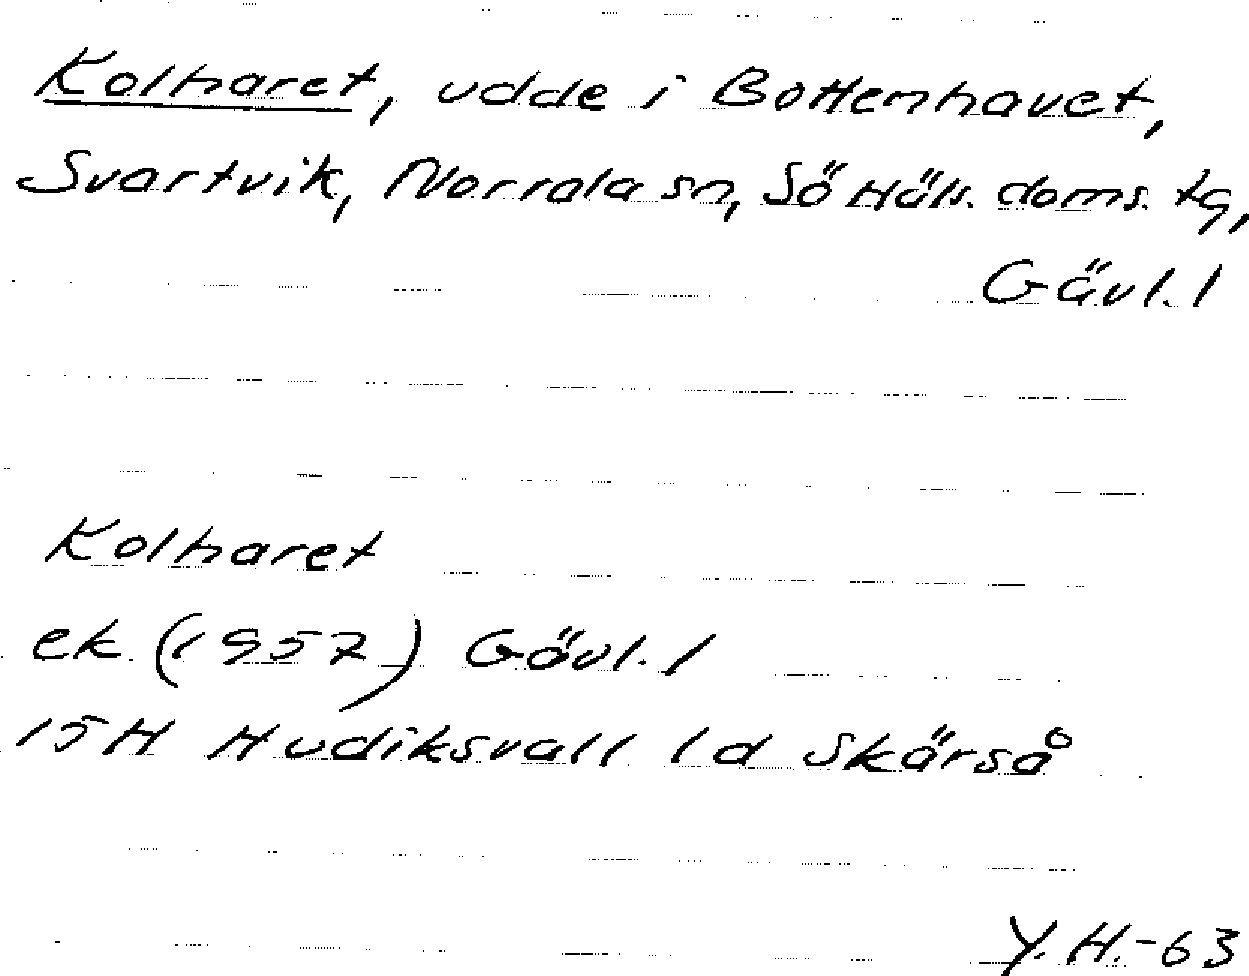 Kolharet, udde i Bottenhavet,
Svartvik, Norrala sn, Sö Häls. doms. tg,
Gävl. l
Kolharet
ek. (1957) Gävl. l
15H Hudiksvall 1d Skärså
Y.H.-63